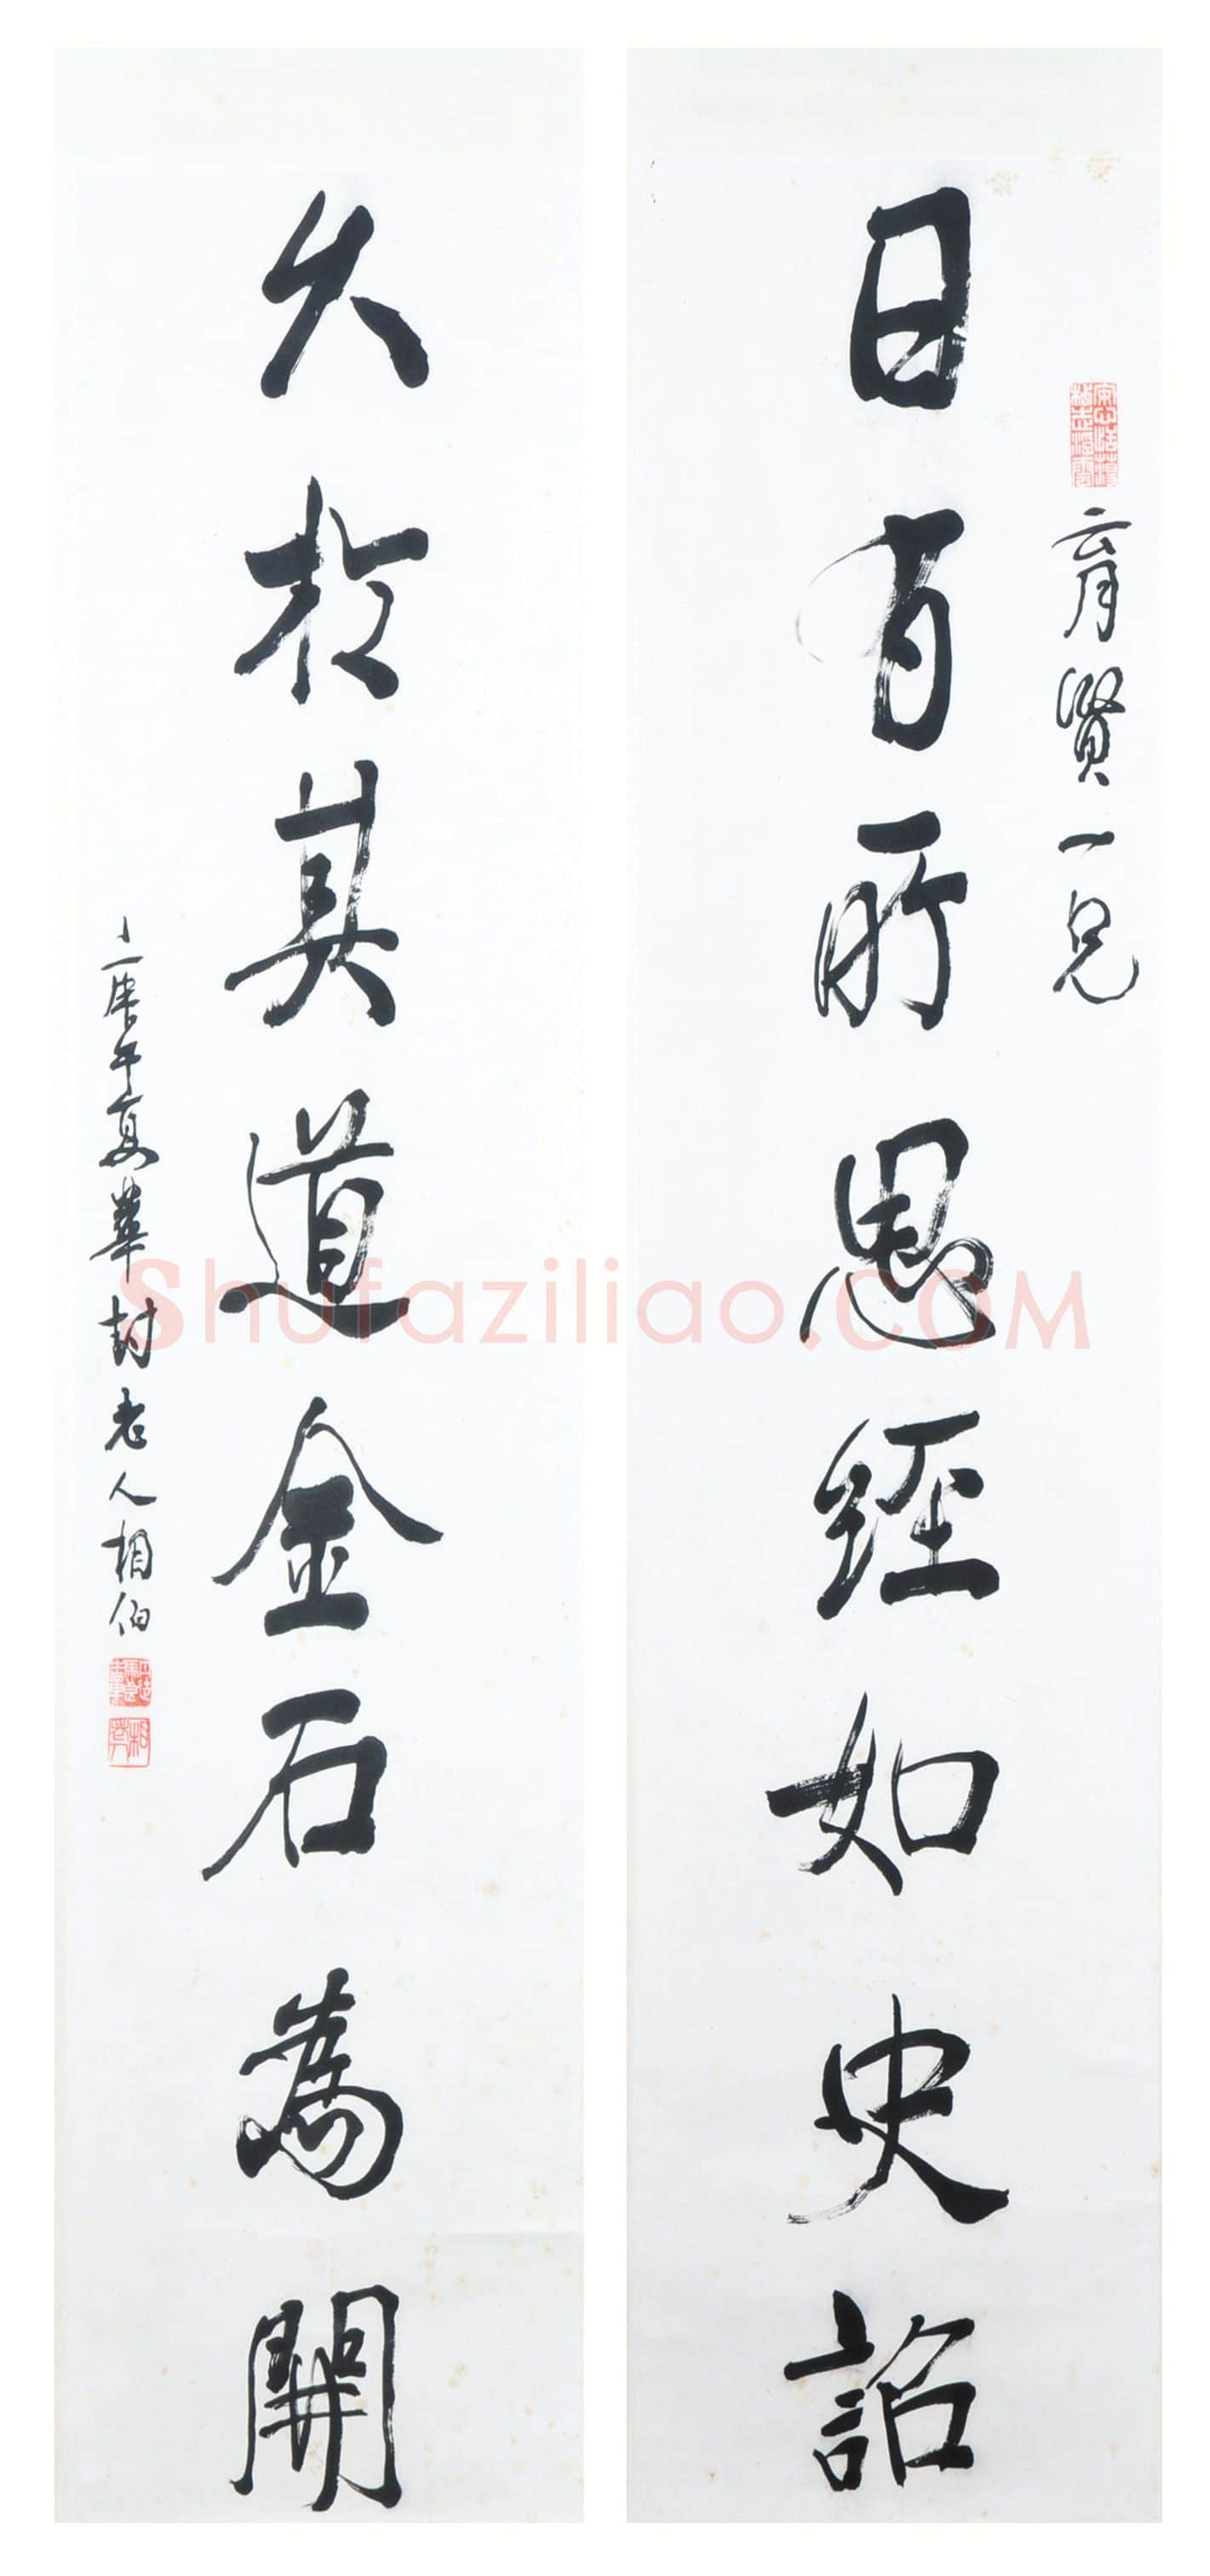 育賢一兄
日有所思經如史詔
久於其道金石為開
上庚午夏華封老人相伯
Shufaziliao.COM